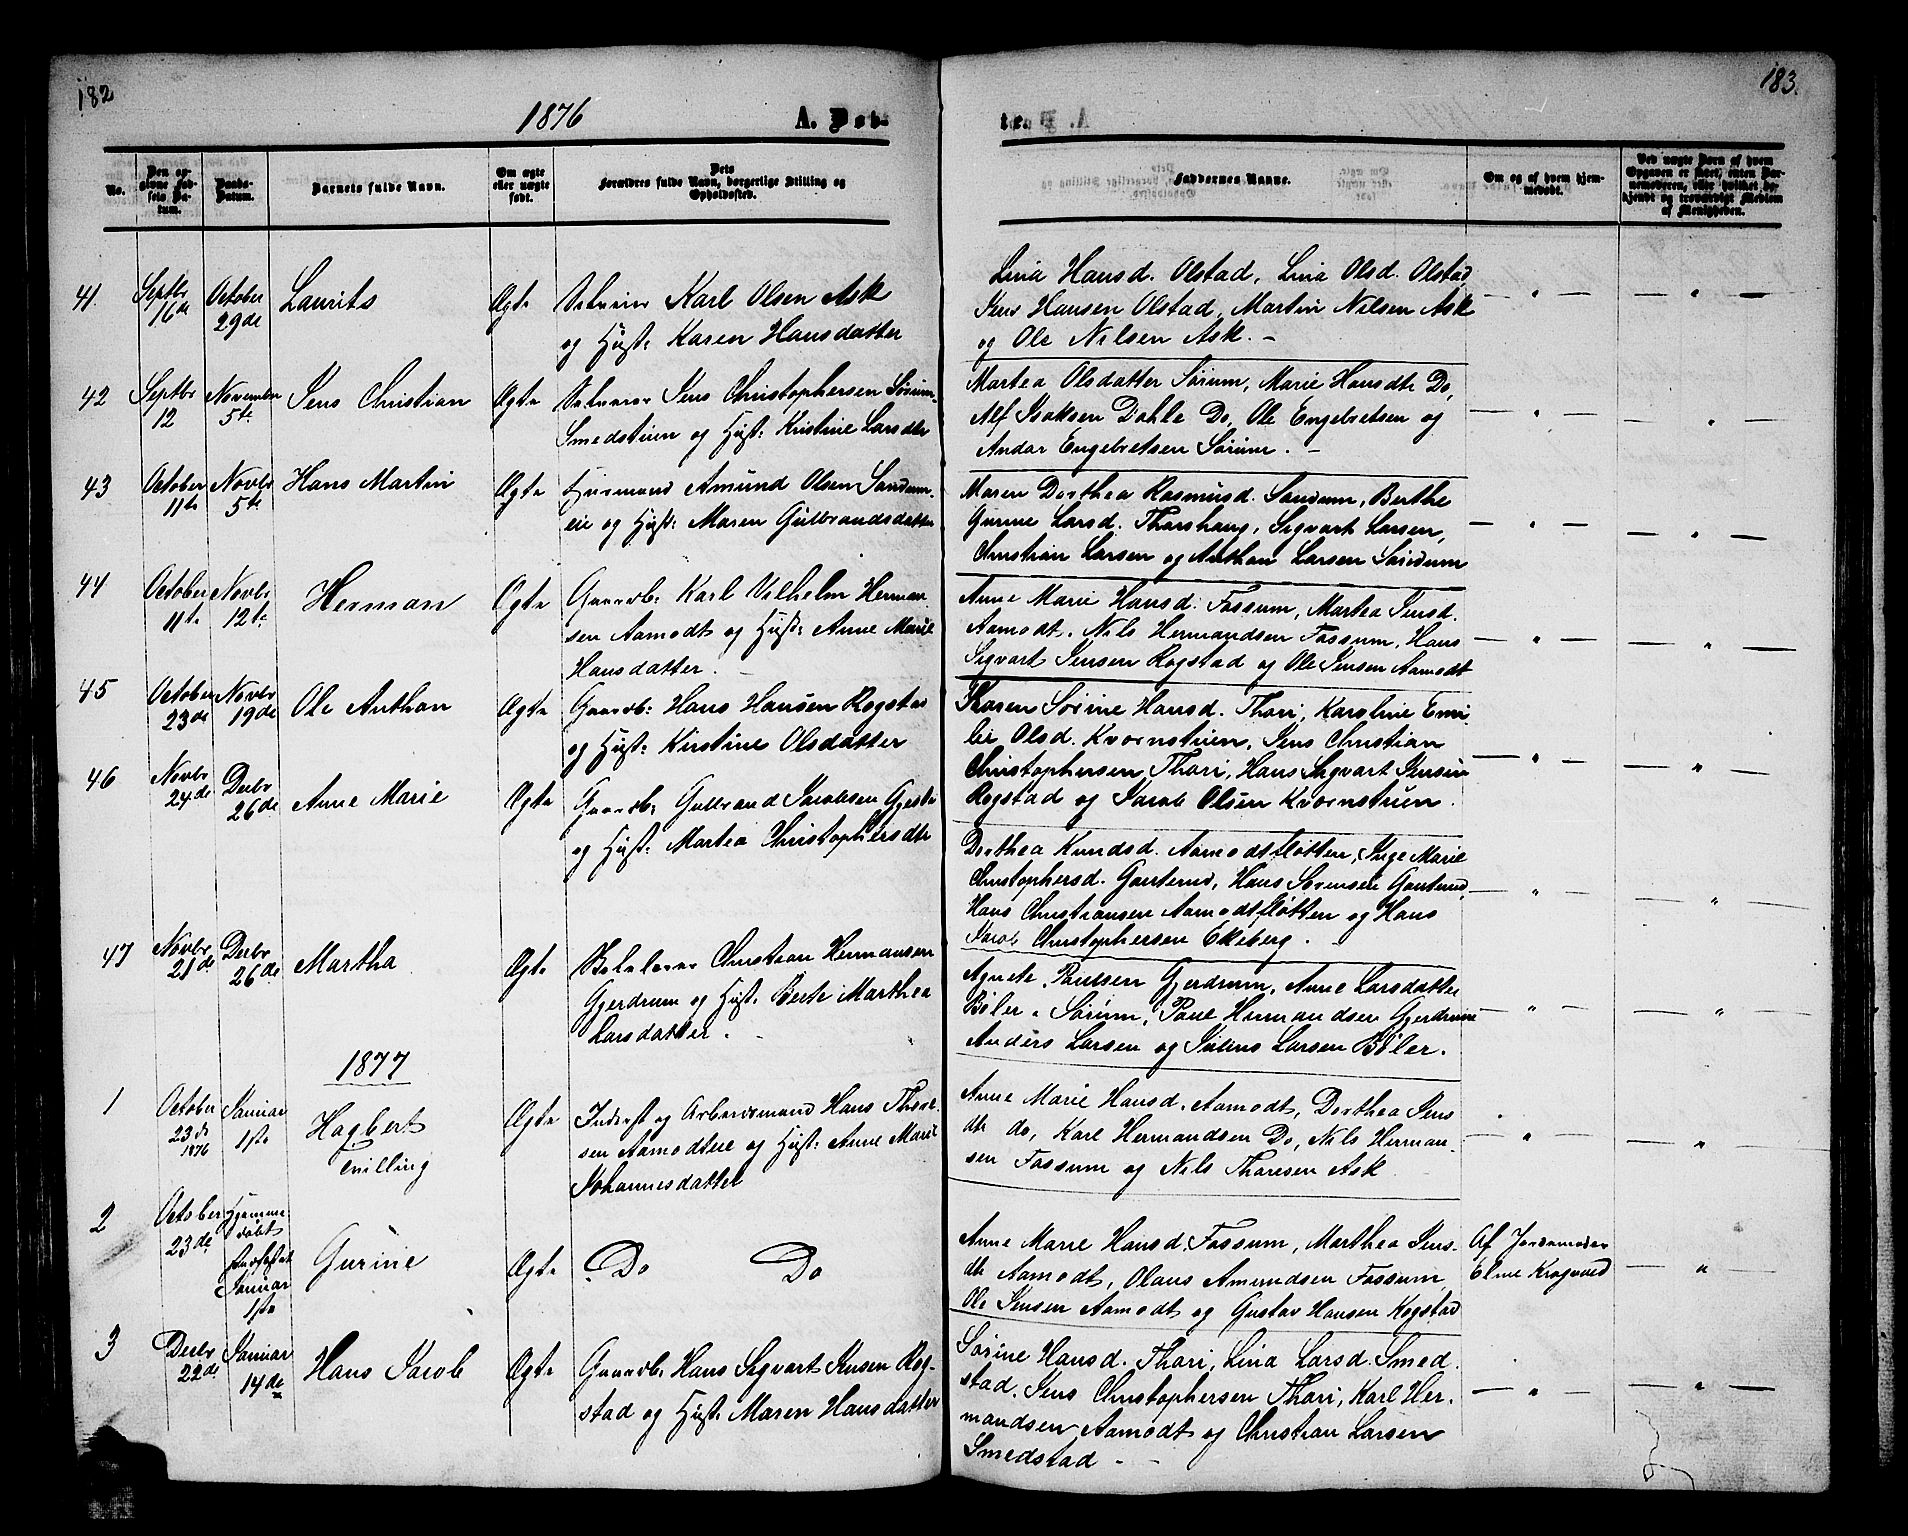 182
1876
A. Døb-
No.
Den op-
givne Fød-
sels Da-
tum.
Daabs-
Datum.
Barnets fulde Navn.
Om ægte
eller uægte
født.
Dets
Forældres fulde Navn, borgerlige Stilling og
Opholdssted.
41
Septbr
16de
October
29de
Laurits
Ægte
Selveier Karl Olsen Ask
og Hust: Karen Hansdatter
42
Septbr
12
November
5te
Jens Christian
Ægte
Selveier Jens Christophersen Sørum-
Smedstuen og Hust: Kristine Larsdtr
43
October
11te
Novbr
5te
Hans Martin
Ægte
Huusmand Amund Olsen Sandum-
eie og Hust: Maren Gulbrandsdatter
44
October
11te
Novbr
12te
Herman
Ægte
Gaardb: Karl Vilhelm Herman-
sen Aamodt og Hust: Anne Marie
Hansdatter.
45
October
23de
Novbr
19de
Ole Anthon
Ægte
Gaardb: Hans Hansen Rogstad
og Hust: Kirstine Olsdatter
46
Novbr
24de
Decbr
26de
Anne Marie
Ægte
Gaardb: Gulbrand Jacobsen
og Hust: Martea Christophersdtr
47
Novbr
21de
Decbr
26de
Martha
Ægte
Christian Hermansen
Gjerdrum og Hust: Berte Marthea
Larsdatter.
1877
1
October
23de
1876
Januar
1ste
Hagbert
tvilling
Ægte
Inderst og Arbeidsmand Hans Thore-
sen Aamodteie og Hust: Anne Marie
Johannesdatter
2
October
23de
Hjemme
døbt
Januar
1ste
Gurine
Ægte
Do Do
3
Decbr
22de
Januar
14de
Hans Jacob
Ægte
Gaardb: Hans Segvart Jensen Rog-
stad og Hust: Maren Hansdatter
183.
te.
Faddernes Navne.
Om og af hvem hjem-
medøbt.
Ved uægte Børn af hvem
Opgaven er skeet, enten Bar-
nemoderen, eller hvilket be-
kjendt og troværdigt Medlem
af Menigheden.
Lina Hansd. Olstad, Lina Olsd. Olstad,
Jens Hansen Olstad, Martin Nilsen Ask
og Ole Nilsen Ask. -
— " — — " —
Martea Olsdatter Sørum, Marie Hansdtr Do,
Alf Isaksen Dahle Do, Ole Engebretsen og
Andar Engebretsen Sørum. -
— " — — " —
Maren Dorthea Rasmusd. Sandum, Berthe
Gurine Larsd. Thorshaug, Segvart Larsen,
Christian Larsen og Anthon Larsen Sandum
— " — — " —
Anne Marie Hansd: Fossum, Martea Jensd.
Aamodt, Nils Hermandsen Fossum, Hans
Segvart Jensen Rogstad og Ole Jensen Aamodt
— " — — " —
Karen Sørine Hansd. Thori, Karoline Emi-
lie Olsd. Kvernstuen, Jens Christian
Christophersen Thori, Hans Segvart Jensen
Rogstad og Jacob Olsen Kvernstuen.
— " — — " —
Dorthea Knudsd. Aamodtfløtten, Inge Marie
Christophersd. Gauterud, Hans Sørensen Gauterud,
Hans Christiansen Aamodtfløtten og Hans
Jacob Christophersen Ekeberg.
— " — — " —
Agnete Paulsen Gjerdrum, Anne Larsdatter
Bøler - Sørum, Paul Hermandsen Gjerdrum
Anders Larsen og Julius Larsen Bøler.
— " — — " —
Anne Marie Hansd. Aamodt, Dorthea Jens-
dtr do, Karl Hermandsen Do, Nils Herman-
sen Fossum og Nils Thoresen Ask
— " — — " —
Anne Marie Hansd: Fossum, Marthea Jens-
dtr Aamodt, Olaus Amundsen Fossum,
Ole Jensen Aamodt og Gustav Hansen Rogstad
Af Jordemoder
Eline Krogsrud
— " —
Sørine Hansd. Thori, Lina Larsd. Smed-
stad, Jens Christophersen Thori, Karl Her-
mandsen Aamodt og Christian Larsen
Smedstad - -
— " — — " —